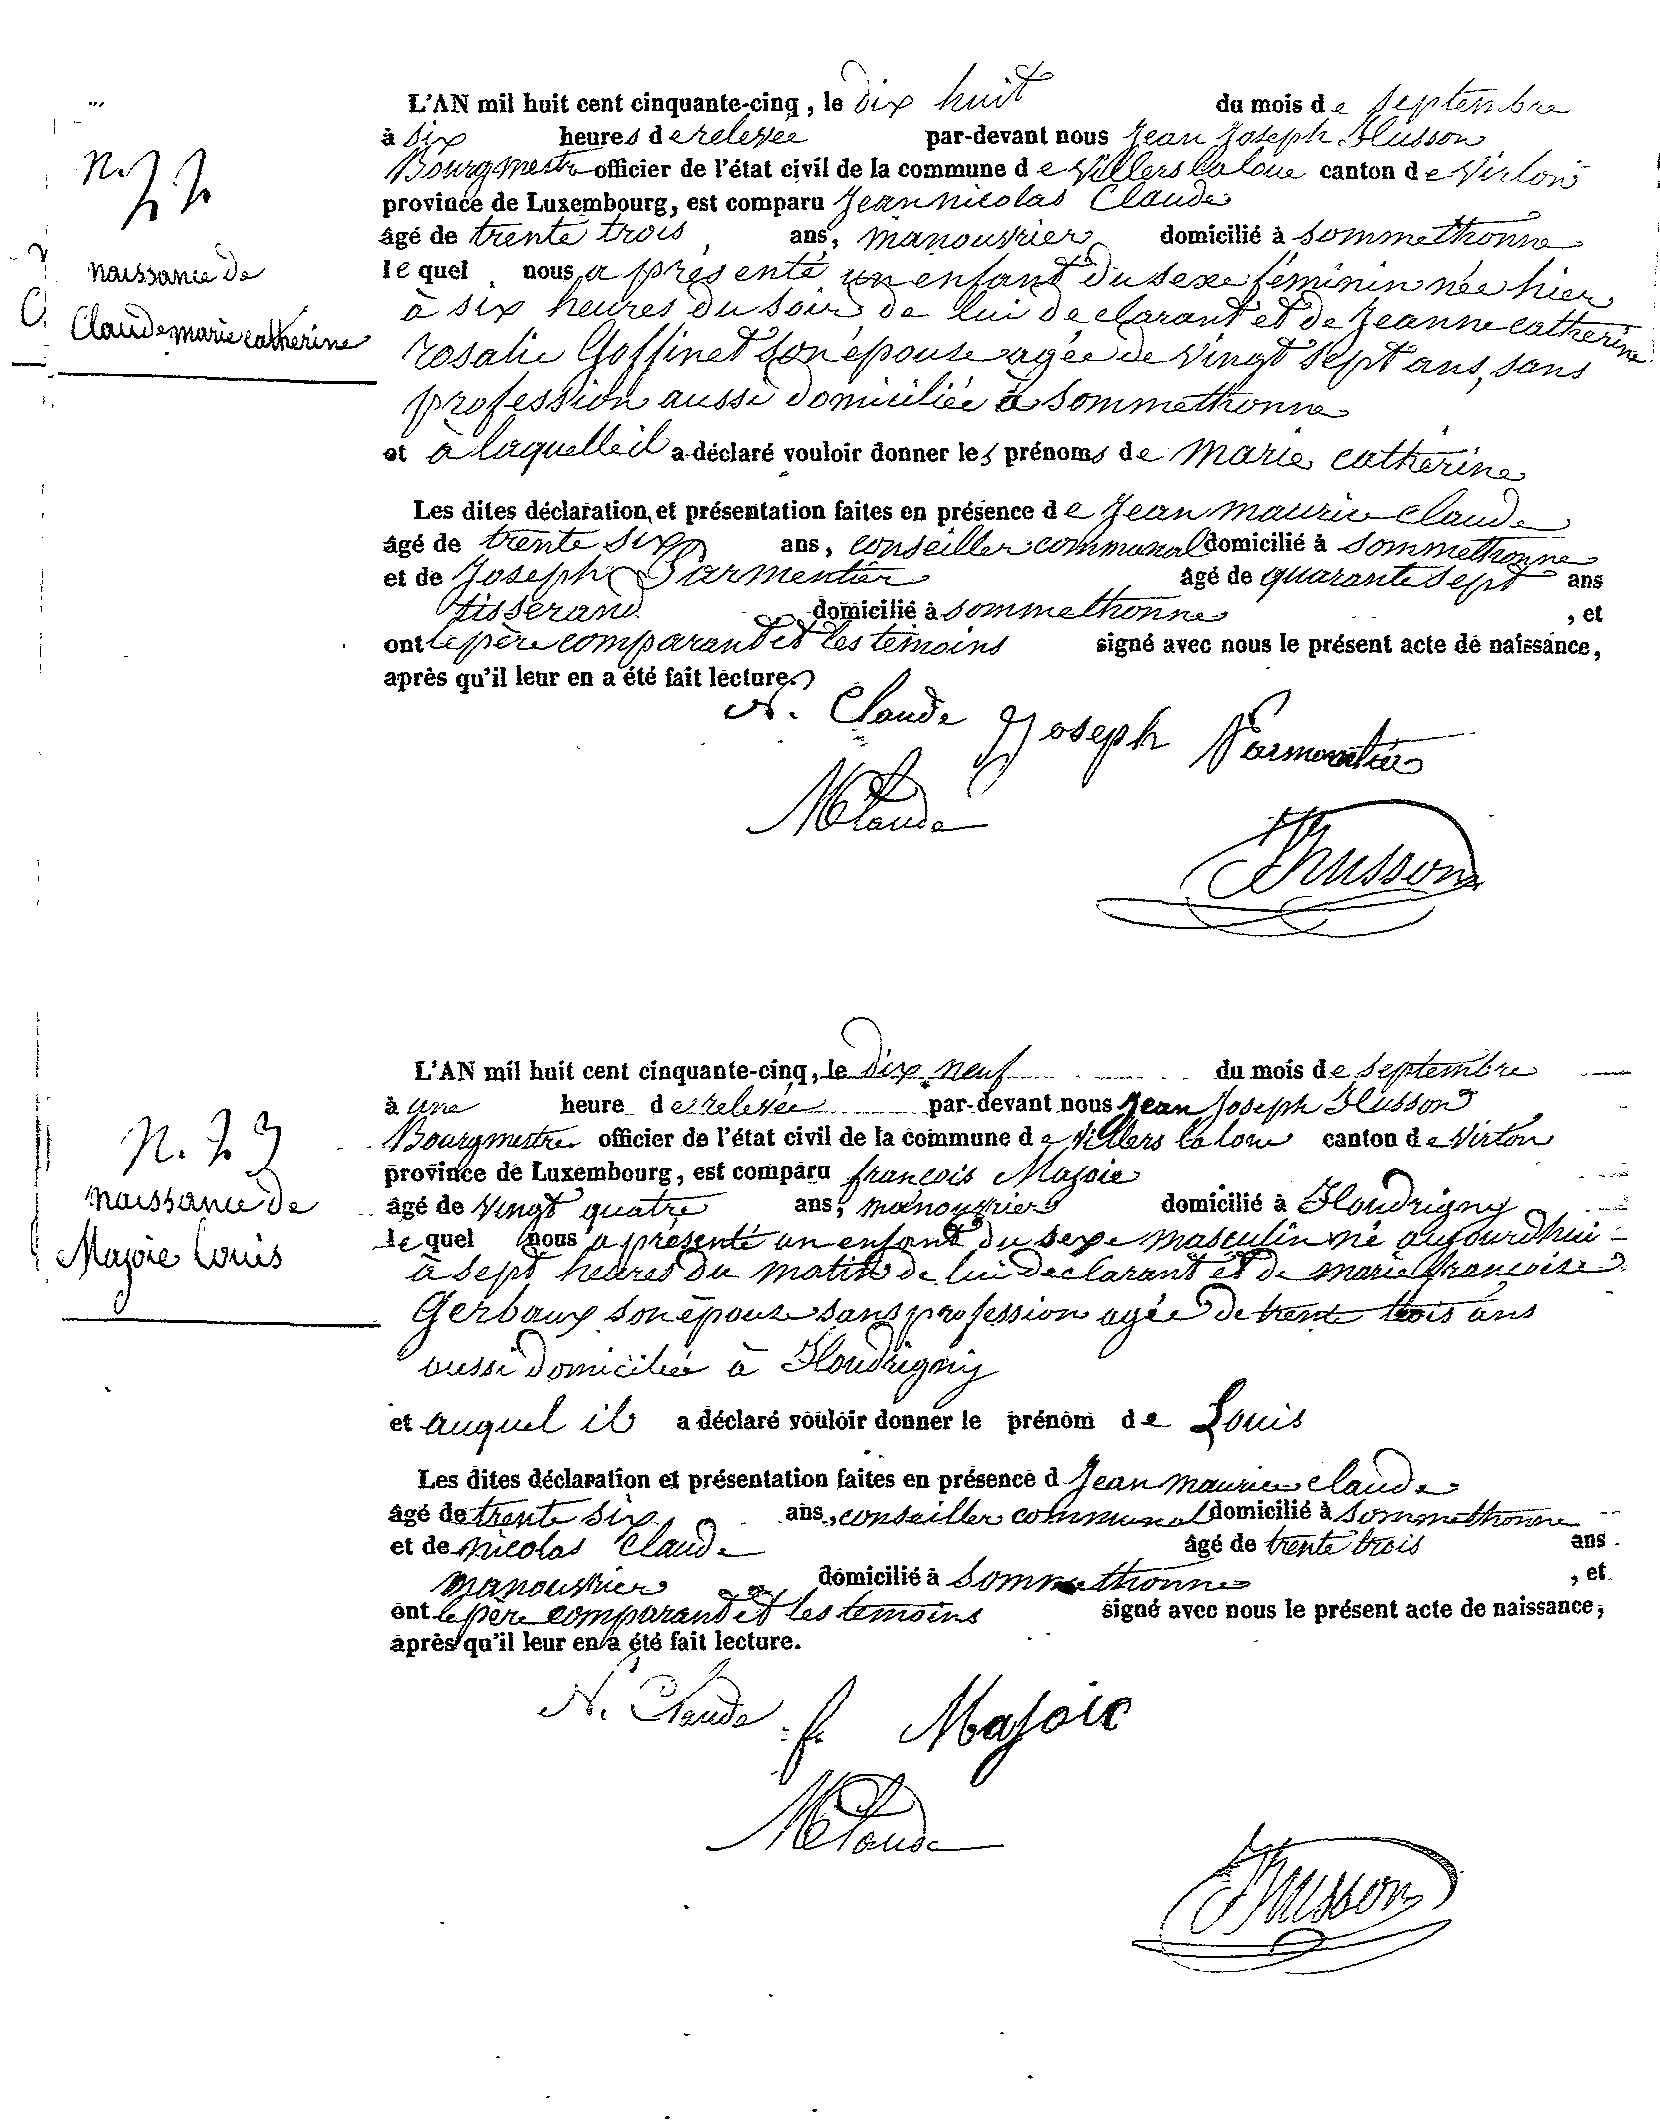 L'AN mil huit cent cinquante-cinq, le dix huit du mois de septembre
à six heures de relevée par-devant nous Jean Joseph Husson
Bourgmestre officier de l'état civil de la commune de Villers la loue canton de Virton
N. 22
province de Luxembourg, est comparu Jean nicolas Claude
âgé de trente trois ans, manouvrier domicilié à sommethonne
naissance de
le quel nous a présenté un enfant du sexe féminin née hier
à six heures du soir de lui déclarant et de Jeanne catherine
Claude marie catherine
rosalie Goffinet son épouse agée de vingt sept ans, sans
profession aussi domiciliée à sommethonne
et à laquelle il a déclaré vouloir donner les prénoms de marie catherine
Les dites déclaration et présentation faites en présence de Jean maurice Claude
âgé de trente six ans, conseiller communal domicilié à sommethonne
et de Joseph Parmentier âgé de quarante sept ans
tisserand domicilié à sommethonne , et
ont le père comparant et les témoins signé avec nous le présent acte de naissance,
après qu'il leur en a été fait lecture.
N. Claude Joseph Parmentier
M Claude
JJhusson
L'AN mil huit cent cinquante-cinq, le dix neuf du mois de septembre
à une heure de relevée par-devant nous Jean Joseph Husson
Bourgmestre officier de l'état civil de la commune de Villers la loue canton de Virton
N. 23
province de Luxembourg, est comparu françois Majoie
naissance de
âgé de vingt quatre ans, manouvrier domicilié à Houdrigny
le quel nous a présenté un enfant du sexe masculin né aujourdhui
Majoie Louis
à sept heures du matin de lui déclarant et de marie françoise
Gerbaux son épouse sans profession agée de trente trois ans
aussi domiciliée à Houdrigny
et auquel il a déclaré vouloir donner le prénom de Louis
Les dites déclaration et présentation faites en présence d Jean maurice Claude
âgé de trente six ans, conseiller communal domicilié à sommethonne
et de nicolas Claude âgé de trente trois ans
manouvrier domicilié à sommethonne , et
ont le père comparant et les témoins signé avec nous le présent acte de naissance,
après qu'il leur en a été fait lecture.
N. Claude f. Majoie
M Claude
JJhusson